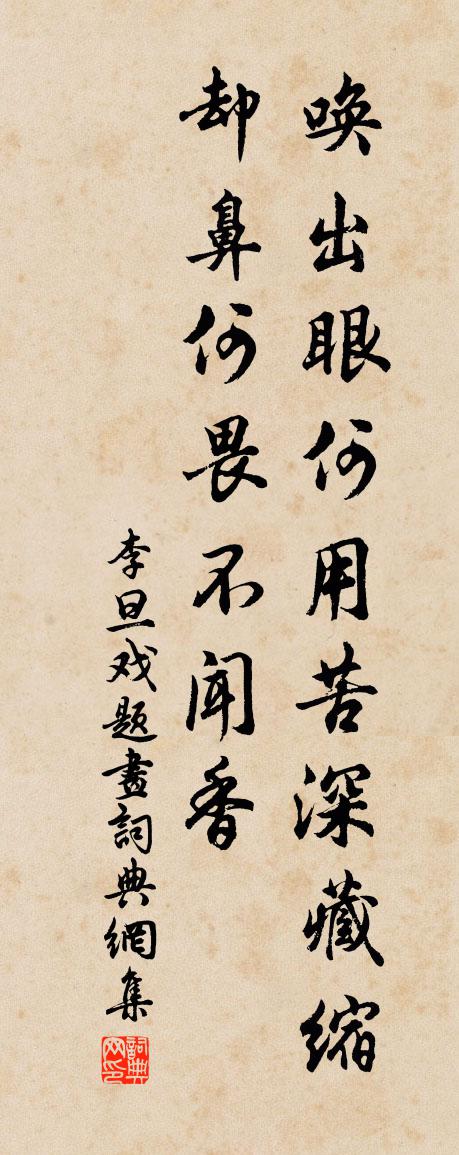 唤出眼何用苦深藏縮
却鼻何畏不闻香
李旦戏题畫詞典網集
詞典网印